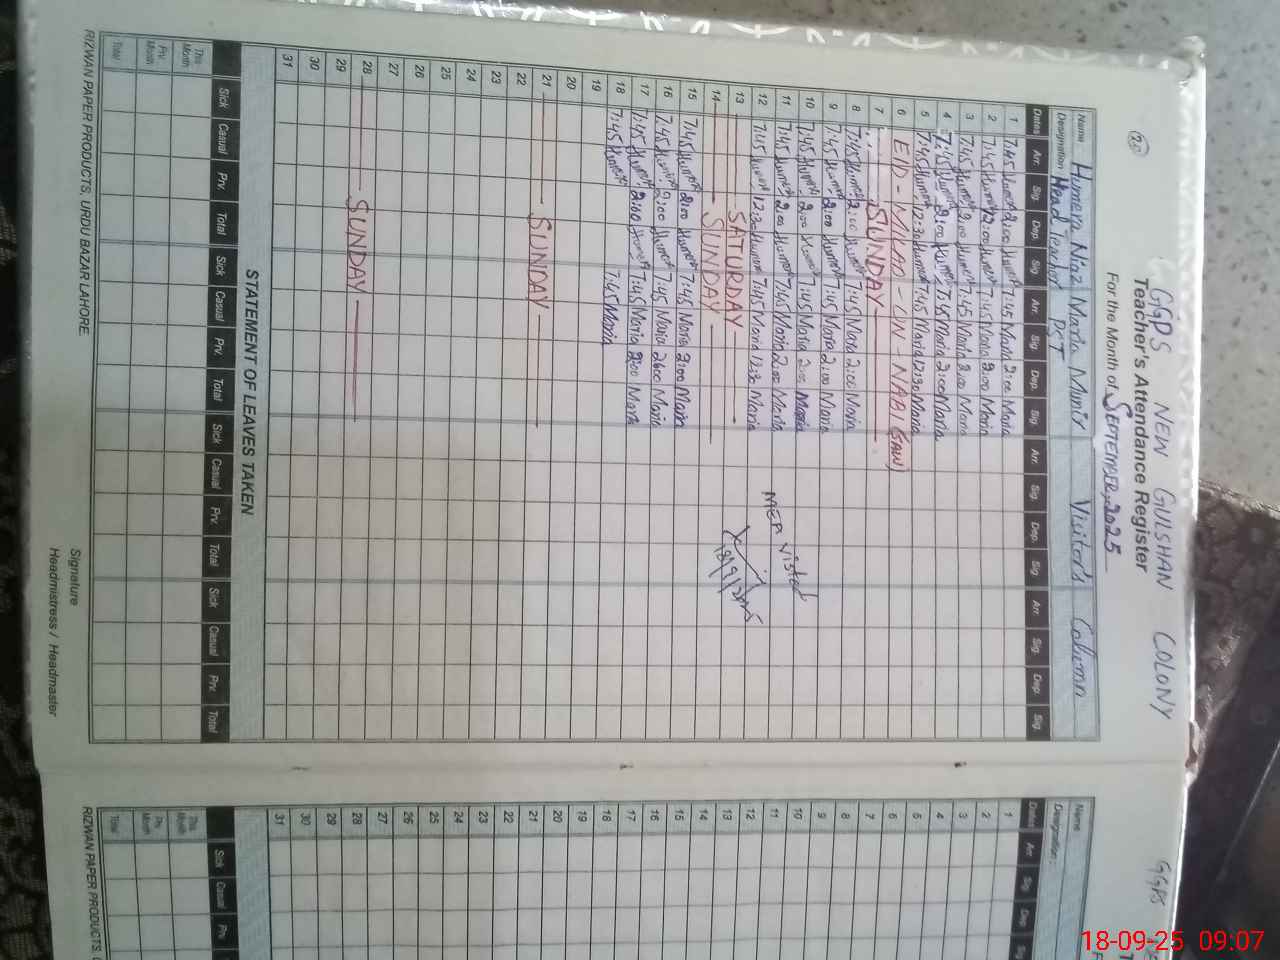 (25)
GGPS NEW GULSHAN COLONY
Teacher's Attendance Register
For the Month of SEPTEMBER, 2025
Name: Humera Niaz Maria Munir Visitor's Column
Designation Head Teacher PST
Dates Arr. Sig. Dep. Sig. Arr. Sig. Dep. Sig. Arr. Sig. Dep. Sig. Arr. Sig. Dep. Sig.
1 7:45 Humera 2:00 Humera 7:45 Maria 2:00 Maria
2 7:45 Humera 2:00 Humera 7:45 Maria 2:00 Maria
3 7:45 Humera 2:00 Humera 7:45 Maria 2:00 Maria
4 7:45 Humera 2:00 Humera 7:45 Maria 2:00 Maria
5 7:45 Humera 12:30 Humera 7:45 Maria 12:30 Maria
6 EID - MILAD - UN - NABI (SAW)
7 SUNDAY
8 7:45 Humera 2:00 Humera 7:45 Maria 2:00 Maria
9 7:45 Humera 2:00 Humera 7:45 Maria 2:00 Maria
10 7:45 Humera 2:00 Humera 7:45 Maria 2:00 Maria
11 7:45 Humera 2:00 Humera 7:45 Maria 2:00 Maria
12 7:45 Humera 12:30 Humera 7:45 Maria 12:30 Maria
MEA Visited
13 SATURDAY
14 SUNDAY
18/9/2025
15 7:45 Humera 2:00 Humera 7:45 Maria 2:00 Maria
16 7:45 Humera 2:00 Humera 7:45 Maria 2:00 Maria
17 7:45 Humera 2:00 Humera 7:45 Maria 2:00 Maria
18 7:45 Humera 7:45 Maria
19
20
21 SUNDAY
22
23
24
25
26
27
28 SUNDAY
29
30
31
STATEMENT OF LEAVES TAKEN
Sick Casual Prv. Total Sick Casual Prv. Total Sick Casual Prv. Total Sick Casual Prv. Total
This Month
Prv. Month
Total
Signature
Headmistress / Headmaster
RIZWAN PAPER PRODUCTS, URDU BAZAR LAHORE.
GGPS
Name
Designation:
Dates Arr. Sig. Dep. Sig.
1
2
3
4
5
6
7
8
9
10
11
12
13
14
15
16
17
18
19
20
21
22
23
24
25
26
27
28
29
30
31
Sick Casual Prv.
This Month
Prv. Month
Total
RIZWAN PAPER PRODUCTS,
18-09-25 09:07